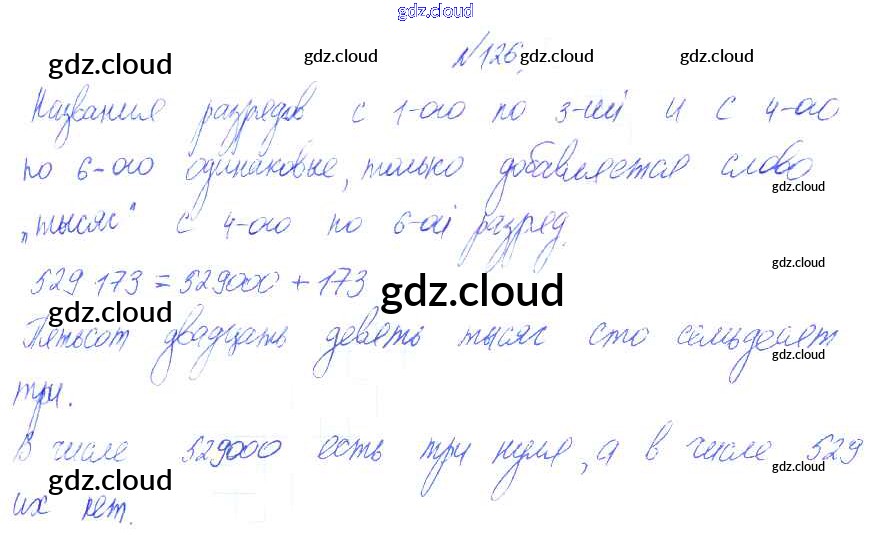 gdz.cloud
№126.
gdz.cloud gdz.cloud gdz.cloud
Названия разрядов с 1-ого по 3-ий и с 4-ого
по 6-ого одинаковые, только добавляется слово
gdz.cloud
„тысяч“ с 4-ого по 6-ой разряд.
gdz.cloud
529 173 = 529000 + 173
gdz.cloud
gdz.cloud
Пятьсот двадцать девять тысяч сто семьдесят
gdz.cloud gdz.cloud
три.
В числе 529000 есть три нуля, а в числе 529
gdz.cloud gdz.cloud gdz.cloud gdz.cloud
их нет.